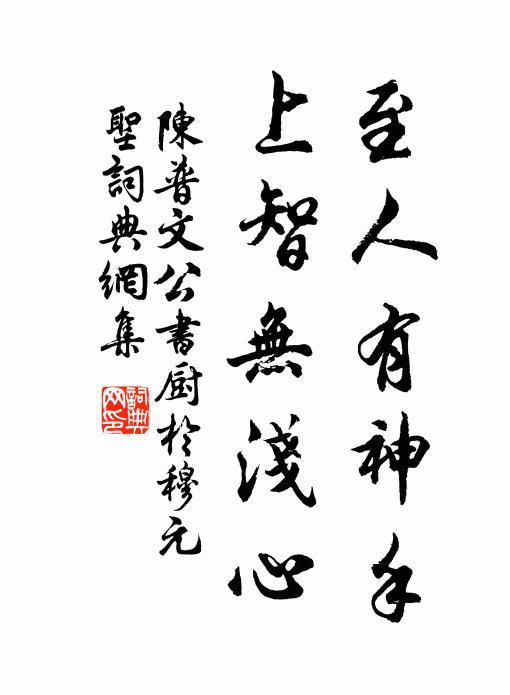 至人有神手
上智無淺心
陳普文公書厨於穆元
聖詞典網集
詞典網印